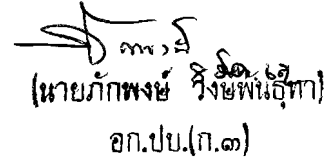 (นายภักพงษ์ วิงษ์พันธุ์ทา)
อก.ปบ.(ก.๓)